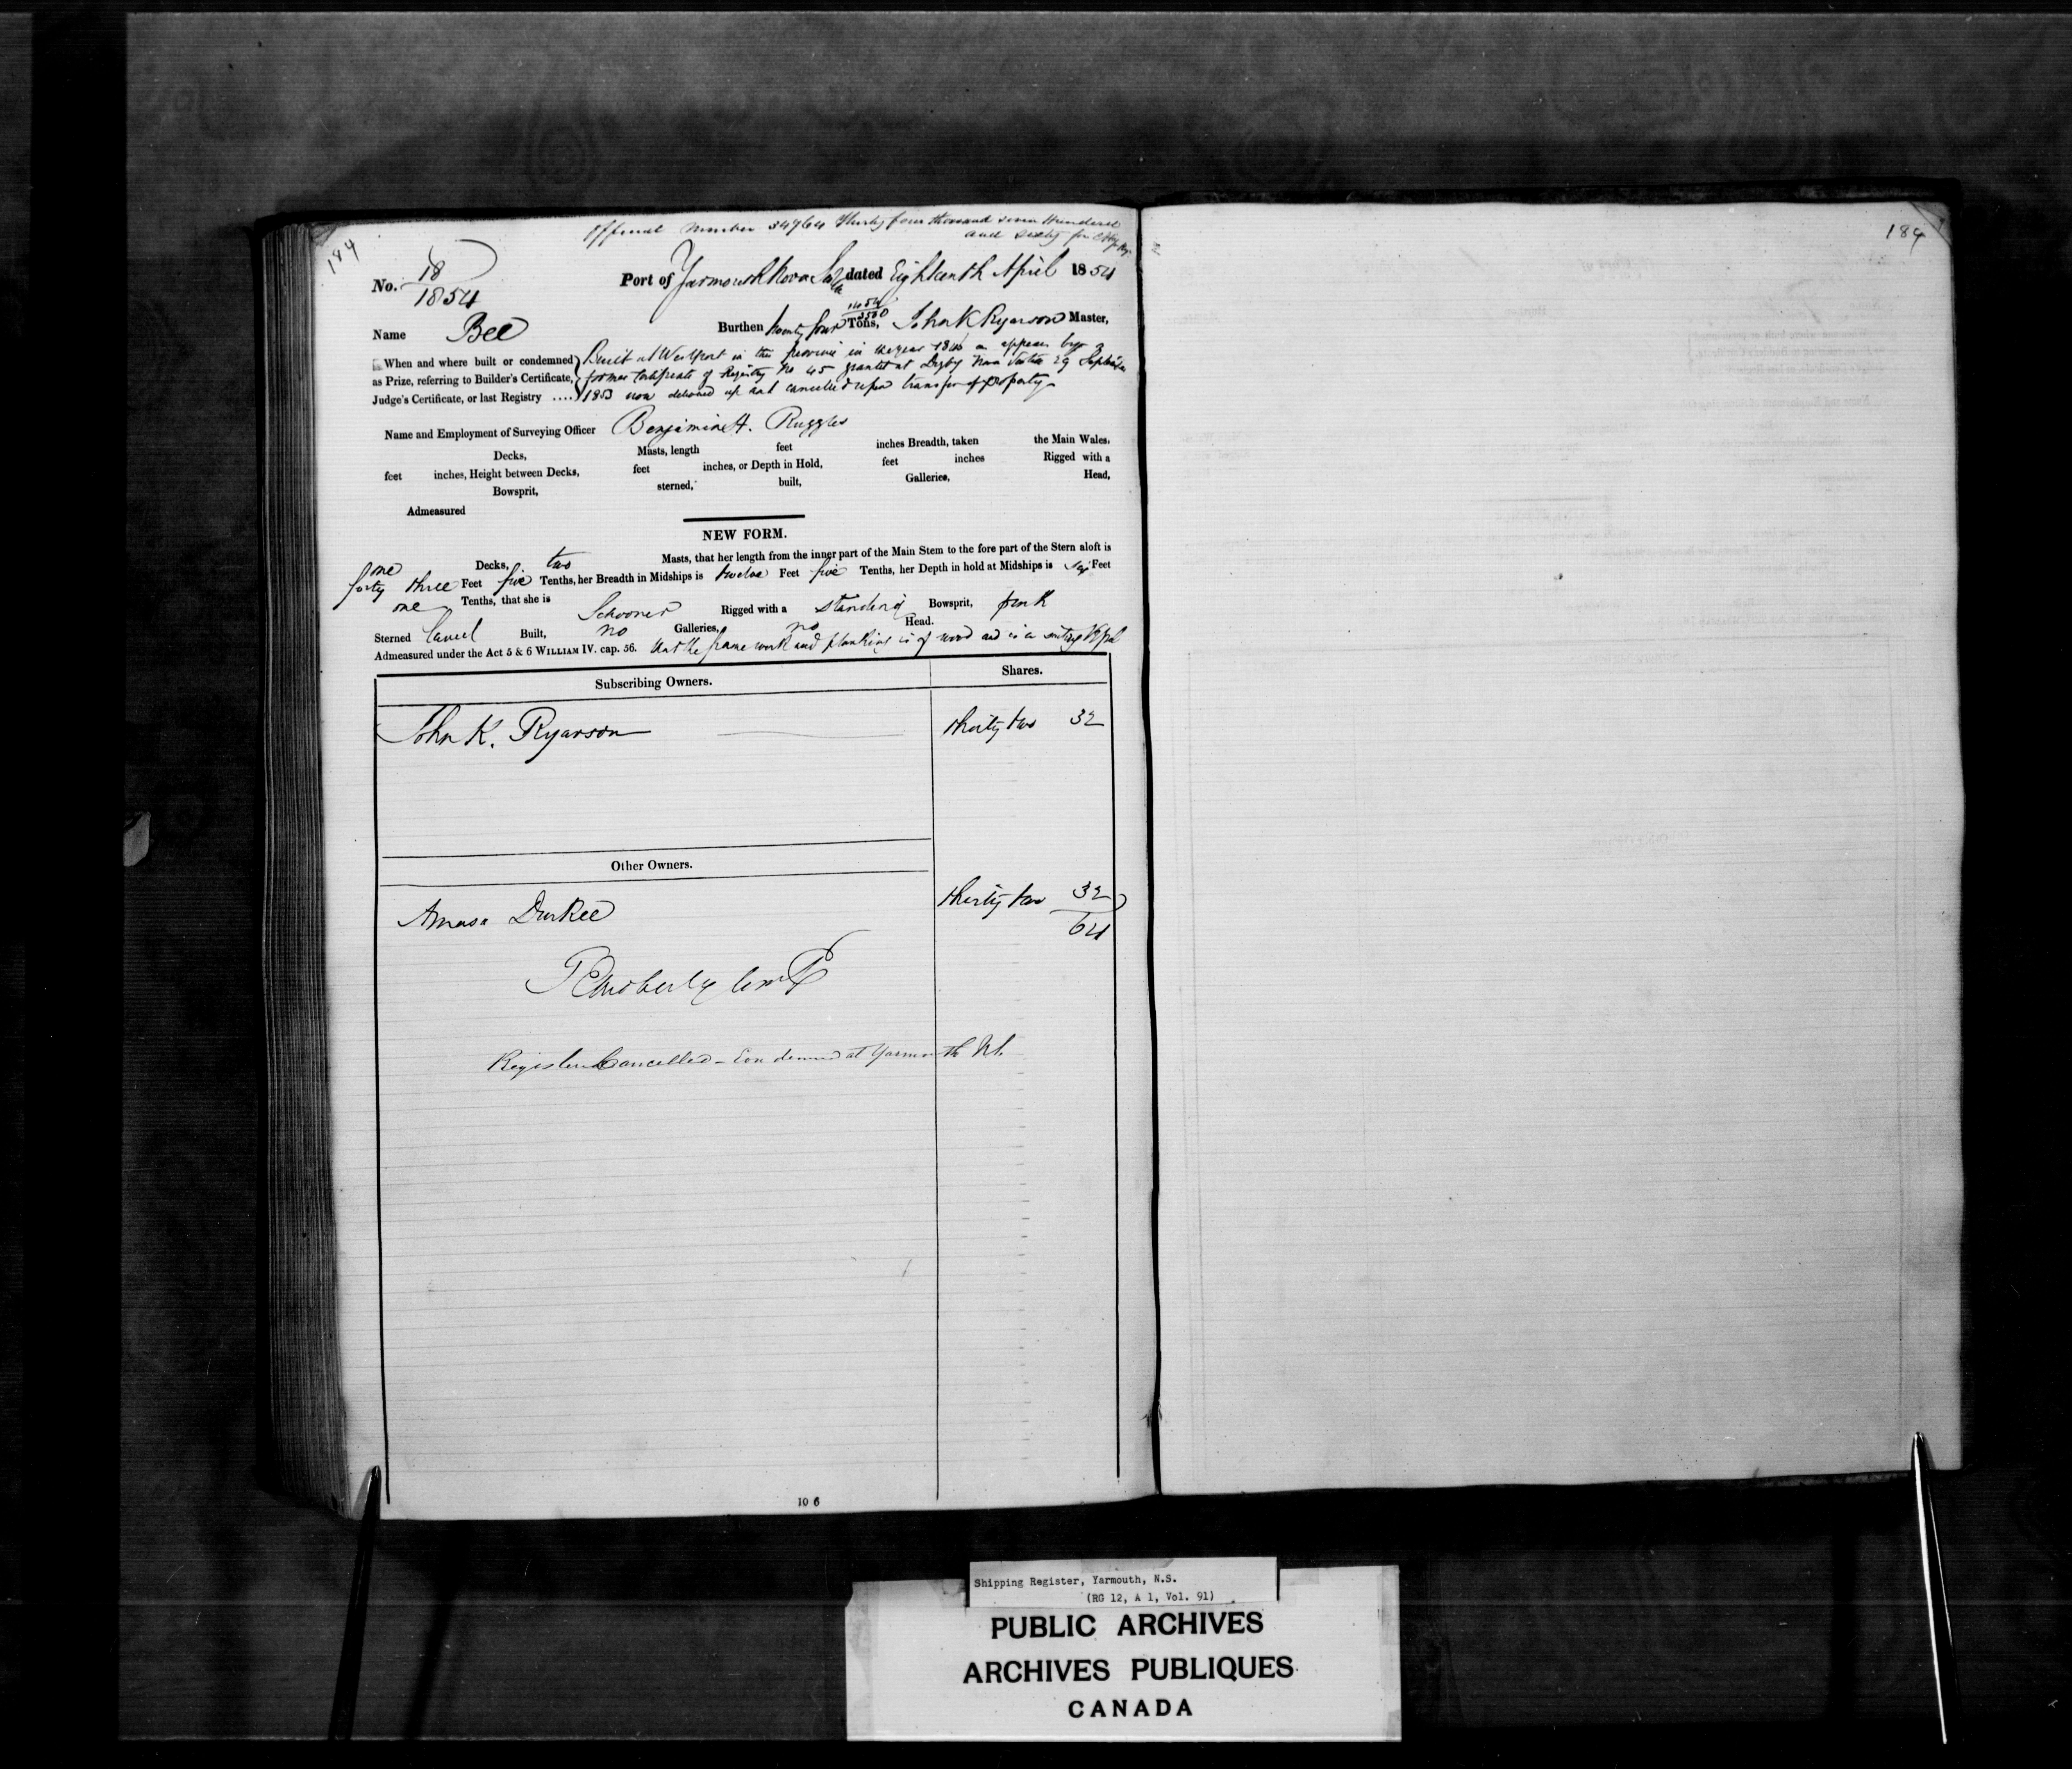 Official Number 34764 Thirty four thousand seven Hundred
and Sixty four
184
184
No. 18
1854
Port of Yarmouth Nova Scotia dated Eighteenth April 1854
Name Bee
Burthen twenty four Tons, John K Ryerson Master,
When and where built or condemned Built at Westport in this province in the year 18 as appears by a
as Prize, referring to Builder's Certificate, former Certificate of Registry No 45 granted at Digby Nova Scotia 29 September
Judge's Certificate, or last Registry .... 1853 now delivered up and cancelled upon transfer of property
Name and Employment of Surveying Officer Benjamin H. Ruggles
Decks, Masts, length feet inches Breadth, taken the Main Wales.
feet inches, Height between Decks, feet inches, or Depth in Hold, feet inches Rigged with a
Bowsprit, sterned, built, Galleries, Head,
Admeasured
NEW FORM.
one Decks, two Masts, that her length from the inner part of the Main Stem to the fore part of the Stern aloft is
forty three Feet five Tenths, her Breadth in Midships is twelve Feet five Tenths, her Depth in hold at Midships is six Feet
one Tenths, that she is Schooner Rigged with a standing Bowsprit, pink
Sterned Carvel Built, no Galleries, no Head.
Admeasured under the Act 5 & 6 WILLIAM IV. cap. 56. that the frame work and planking is of wood and is a
Subscribing Owners. Shares.
John K. Ryerson thirty two 32
Other Owners.
Amasa Durkee thirty two 32
64
Register Cancelled - Condemned at Yarmouth NS.
10 6
Shipping Register, Yarmouth, N.S.
(RG 12, A 1, Vol. 91)
PUBLIC ARCHIVES
ARCHIVES PUBLIQUES
CANADA